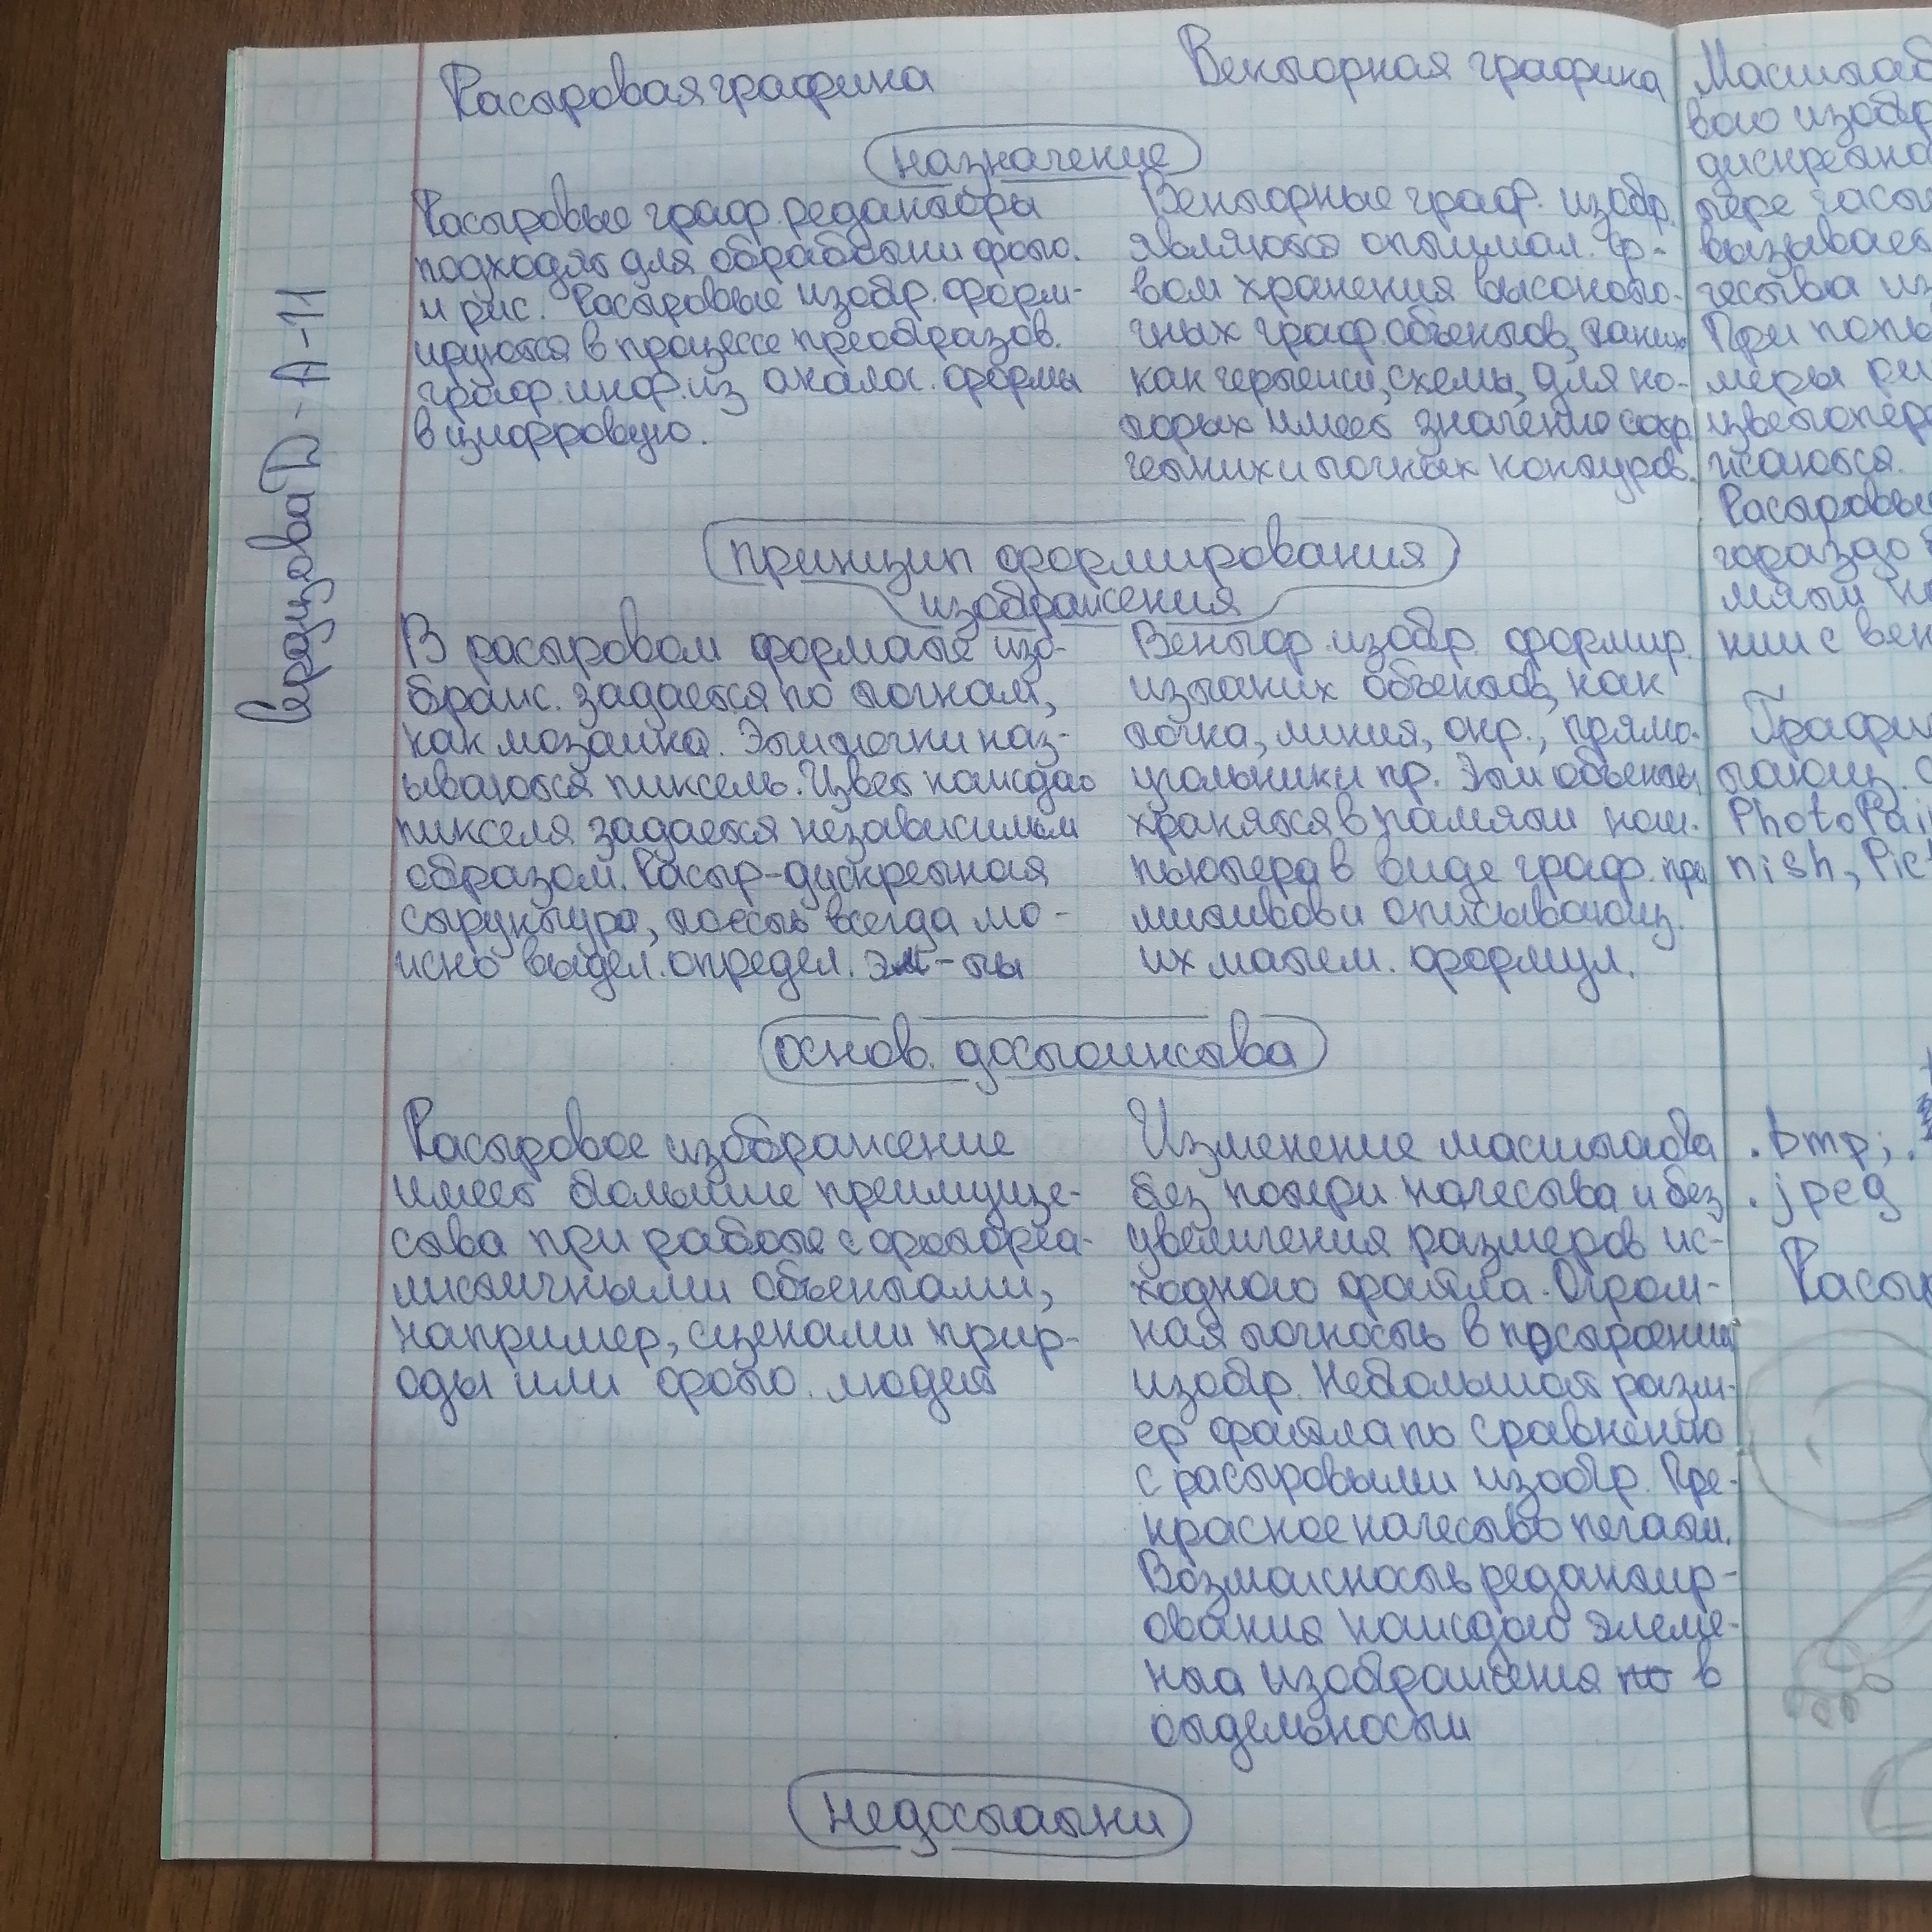 Растровая графика
Векторная графика
назначение
Растровые граф. редакторы
подходят для обработки фото.
и рис. Растровые изобр. форм-
ируются в процессе преобразов.
граф. инф. из аналог. формы
в цифровую.
Векторные граф. изобр.
являются оптимал. ср-
вом хранения высокото-
чных граф. объектов, таких
как чертежи, схемы, для ко-
торых имеет значение сохр.
четких и точных контуров.
принцип формирования
изображения
В растровом формате изо-
браж. задается по точкам,
как мозаика. Эти точки наз-
ываются пиксель. Цвет каждого
пикселя задается независимым
образом. Растр-дискретная
структура, тоесть всегда мо-
жно выдел. определ. эл-ты
Вектор. изобр. формир.
из таких объектов, как
точка, линия, окр., прямо-
угольник и пр. Эти объекты
хранятся в памяти ком-
пьютера в виде граф. при
митивов и описывающ.
их матем. формул.
основ. достоинства
Растровое изображение
имеет большие преимуще-
ства при работе с фотореа-
листичными объектами,
например, сценами прир-
оды или фото. людей
Изменение масштаба
без потери качества и без
увеличения размеров ис-
ходного файла. Огром-
ная точность в построении
изобр. Небольшой разм-
ер файла по сравнению
с растровыми изобр. Пре-
красное качество печати.
Возможность редактир-
ования каждого элеме-
нта изображения в
отдельности
недостатки
Масштаб
вого изобр
дискретно
вызывает
чества из
При попы
меры ри
цветопер
жаются.
Растровые
гораздо
нии с век
Графи
PhotoPai
nish, Pic
.bmp; .
.jpeg
Растр
А-11